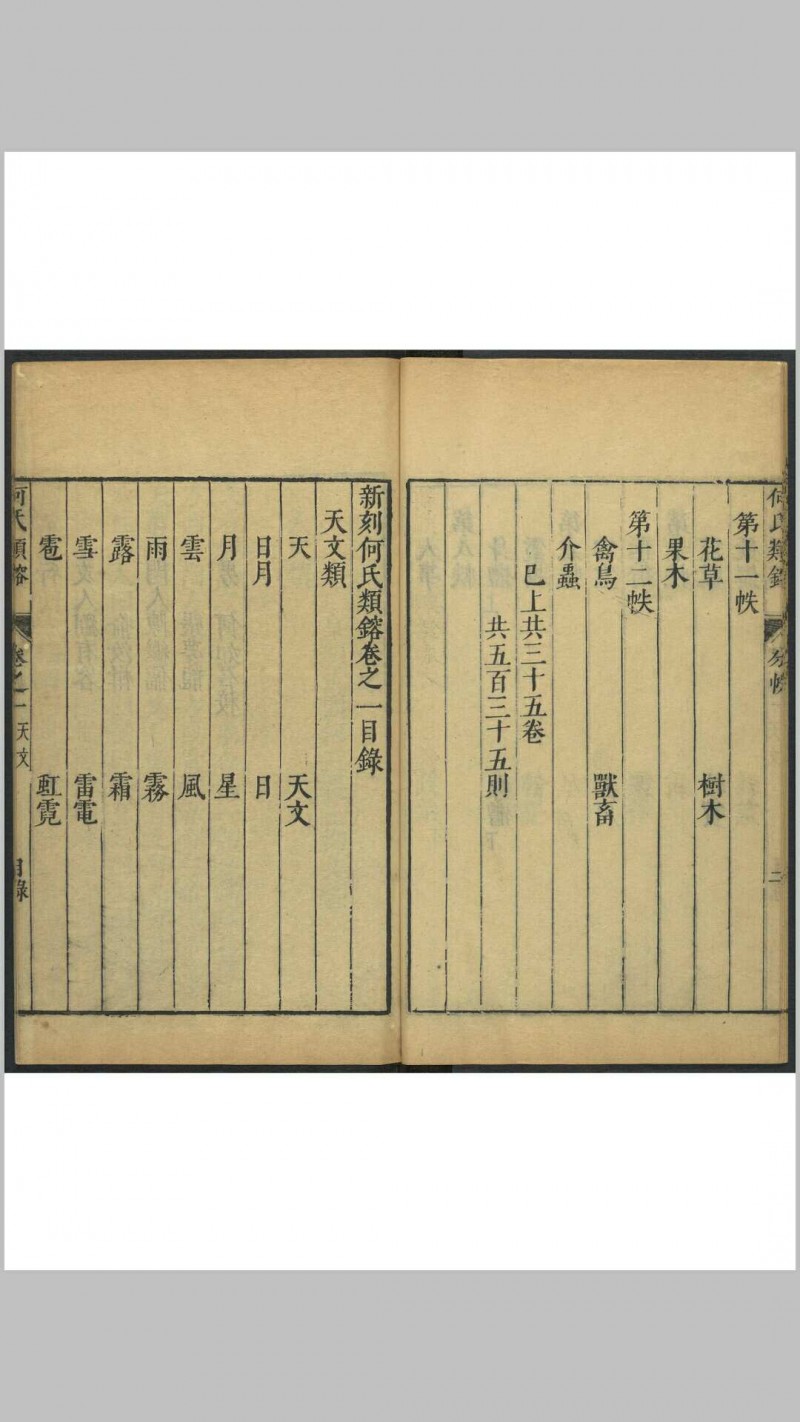 何氏類鎔 分帙 二
第十一帙
花草 樹木
果木
第十二帙
禽鳥 獸畜
介蟲
已上共三十五卷
共五百三十五則
新刻何氏類鎔卷之一目錄
天文類
天 天文
日月 日
月 星
雲 風
雨 霧
露 霜
雪 雷電
雹 虹霓
何氏類鎔 卷之一 天文 目錄